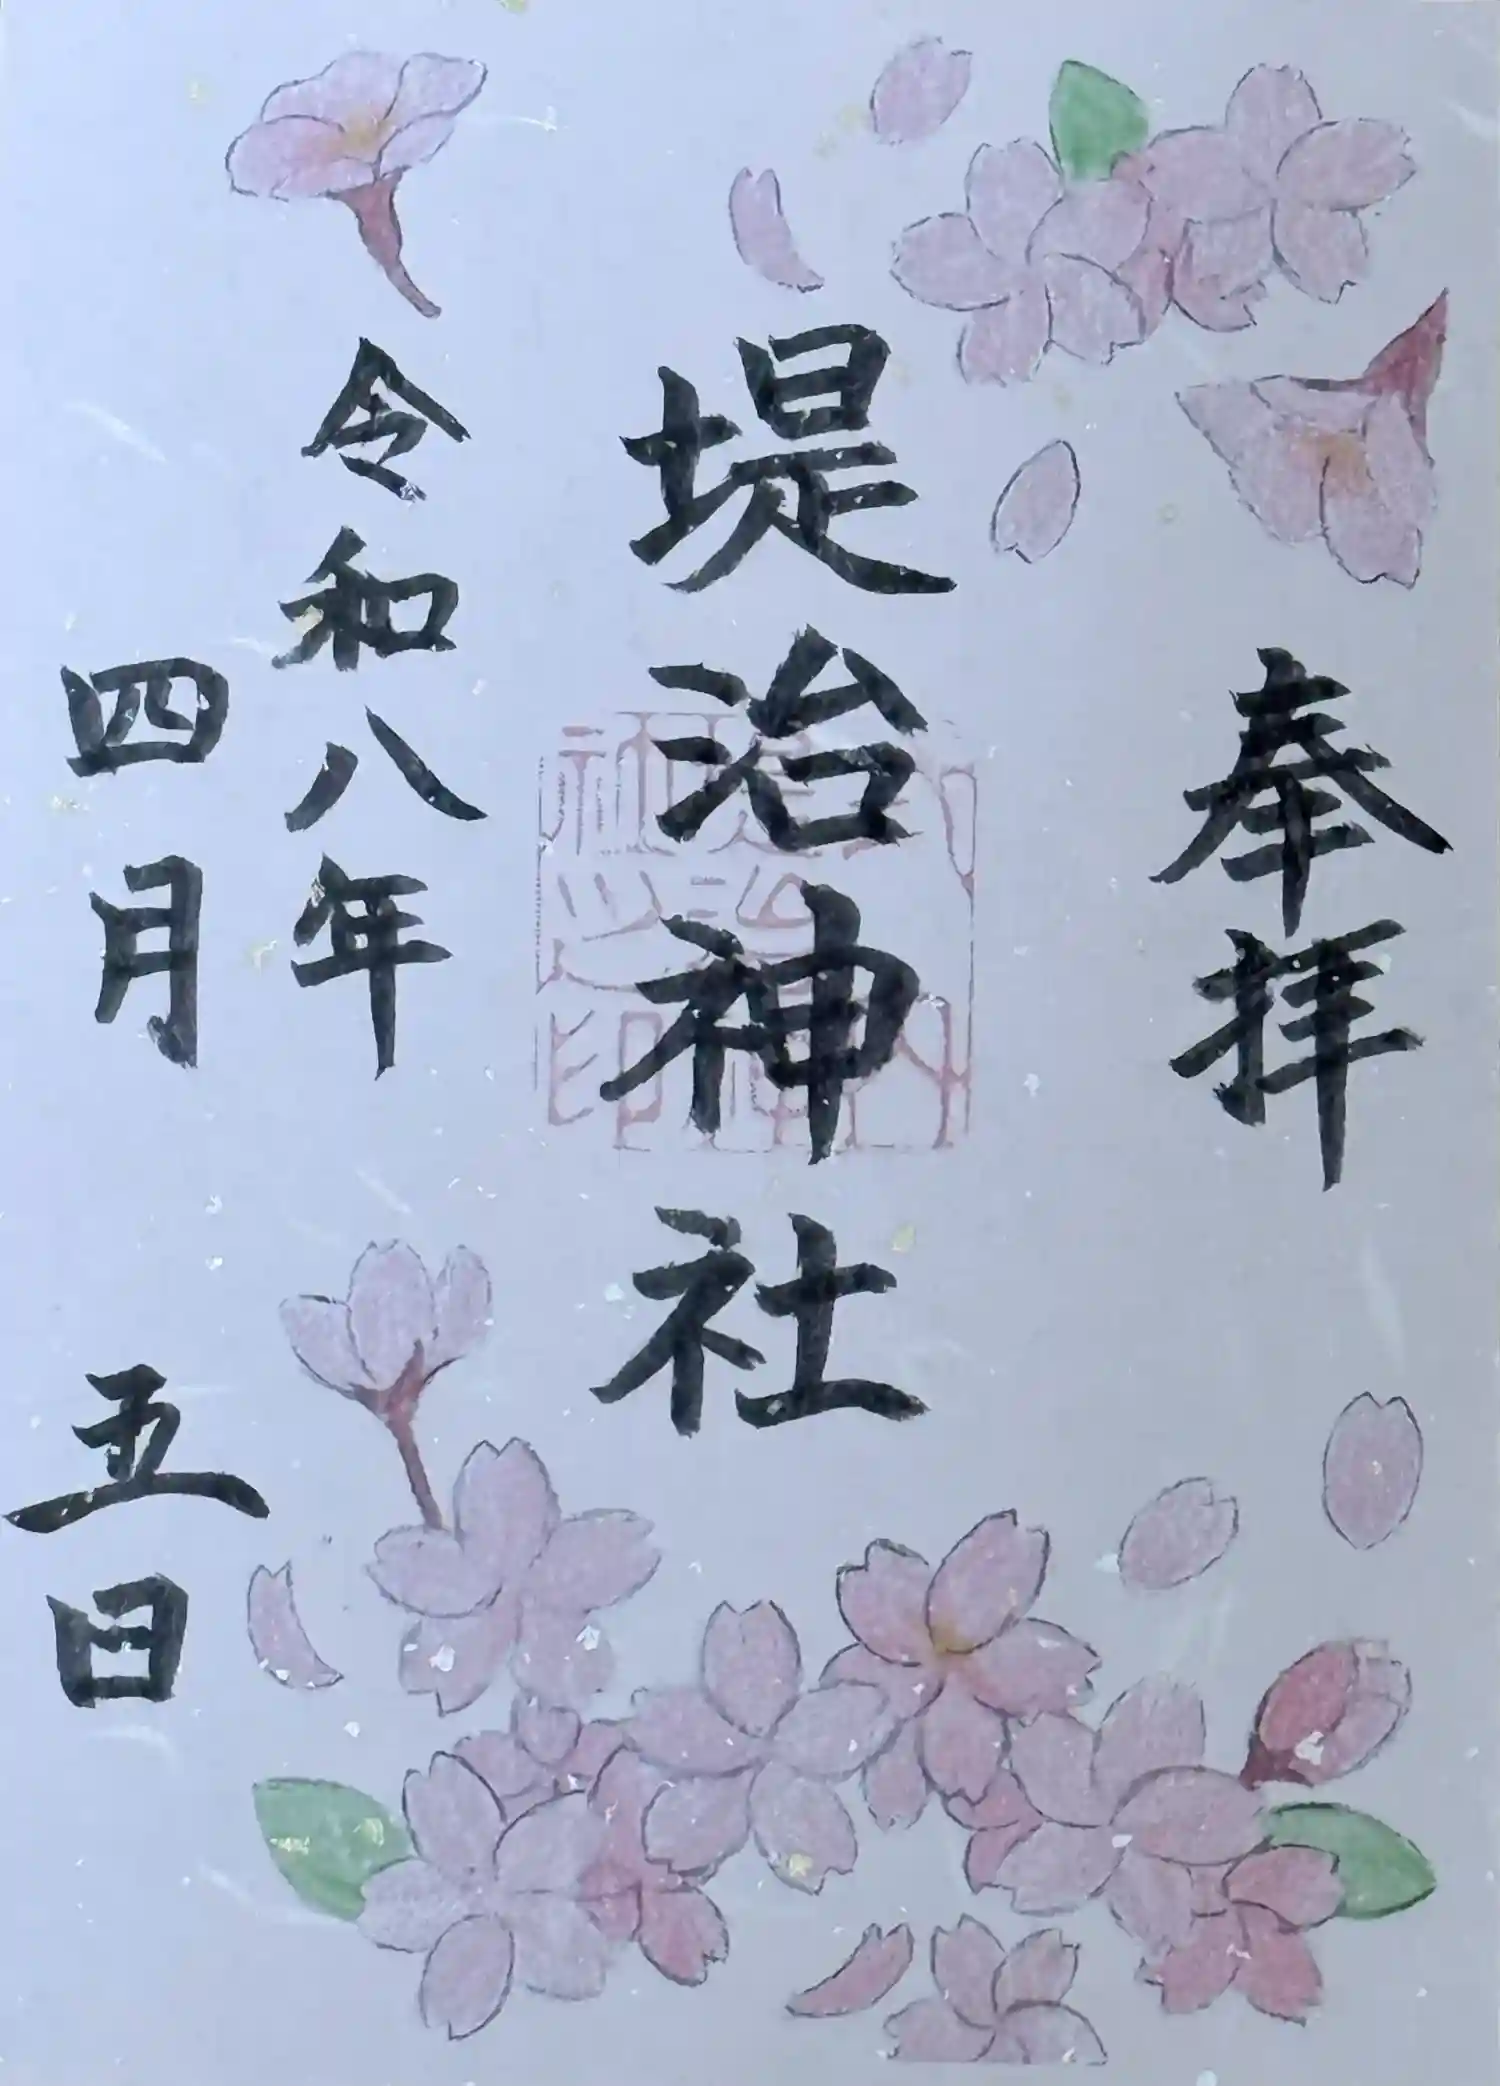 奉拝
堤治神社
令和八年
四月
五日